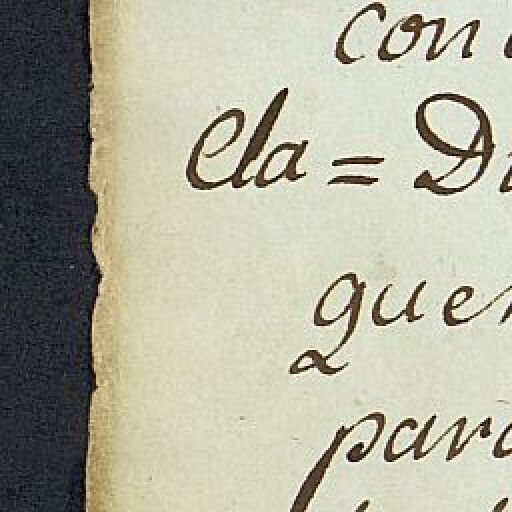 con
Cla = D
quer
para